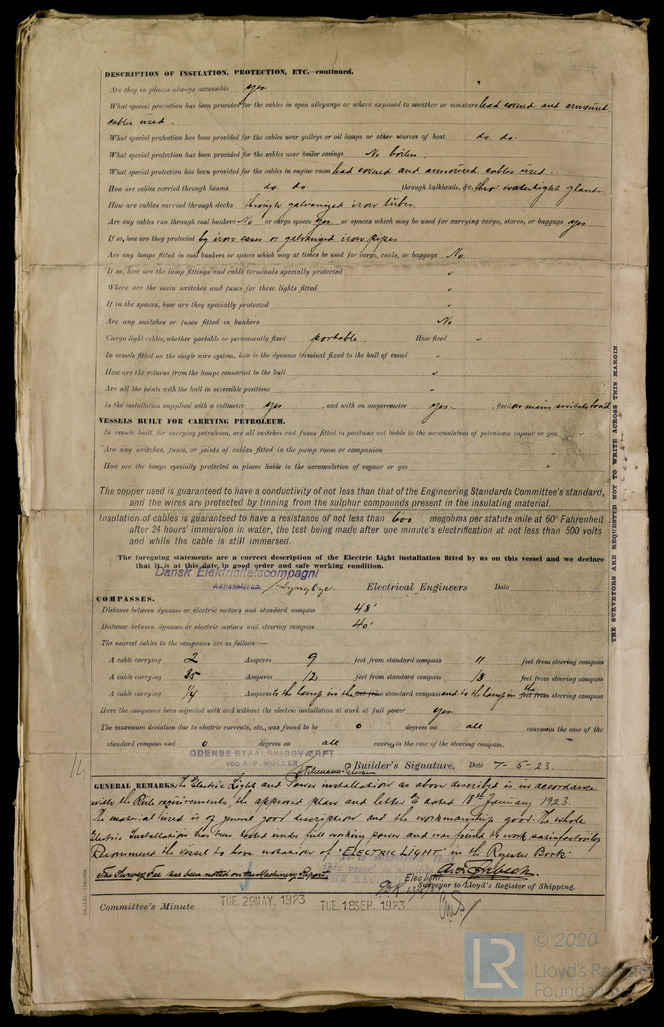 DESCRIPTION OF INSULATION, PROTECTION, ETC.—continued.
Are they in places always accessible yes.
What special protection has been provided for the cables in open alleyways or where exposed to weather or moisture lead covered and armoured
cables used.
What special protection has been provided for the cables near galleys or oil lamps or other sources of heat do. do.
What special protection has been provided for the cables near boiler casings No boilers.
What special protection has been provided for the cables in engine room lead covered and armoured cables used.
How are cables carried through beams do. do. through bulkheads, &c. thro' watertight glands.
How are cables carried through decks through galvanized iron tubes.
Are any cables run through coal bunkers No or cargo spaces yes. or spaces which may be used for carrying cargo, stores, or baggage yes
If so, how are they protected by iron cases or galvanized iron pipes
Are any lamps fitted in coal bunkers or spaces which may at times be used for cargo, coals, or baggage No.
If so, how are the lamp fittings and cable terminals specially protected "
Where are the main switches and fuses for these lights fitted "
If in the spaces, how are they specially protected "
Are any switches or fuses fitted in bunkers No
Cargo light cables, whether portable or permanently fixed portable. How fixed "
In vessels fitted on the single wire system, how is the dynamo terminal fixed to the hull of vessel "
How are the returns from the lamps connected to the hull "
Are all the joints with the hull in accessible positions "
Is the installation supplied with a voltmeter yes , and with an amperemeter yes. , fixed on main switchboard
VESSELS BUILT FOR CARRYING PETROLEUM.
In vessels built for carrying petroleum, are all switches and fuses fitted in positions not liable to the accumulation of petroleum vapour or gas
Are any switches, fuses, or joints of cables fitted in the pump room or companion "
How are the lamps specially protected in places liable to the accumulation of vapour or gas "
The copper used is guaranteed to have a conductivity of not less than that of the Engineering Standards Committee's standard,
and the wires are protected by tinning from the sulphur compounds present in the insulating material.
Insulation of cables is guaranteed to have a resistance of not less than 600 megohms per statute mile at 60° Fahrenheit
after 24 hours' immersion in water, the test being made after one minute's electrification at not less than 500 volts
and while the cable is still immersed.
The foregoing statements are a correct description of the Electric Light installation fitted by us on this vessel and we declare
that it is at this date in good order and safe working condition.
Dansk Elektricitetscompagni
Aktieselskab Lyngbye. Electrical Engineers Date
COMPASSES.
Distance between dynamo or electric motors and standard compass 48'
Distance between dynamo or electric motors and steering compass 40'
The nearest cables to the compasses are as follows:—
A cable carrying 2 Amperes 9 feet from standard compass 11 feet from steering compass
A cable carrying 35 Amperes 12 feet from standard compass 18 feet from steering compass
A cable carrying 1/4 Amperes to the lamp in the standard compass and to the lamp in the steering compass
Have the compasses been adjusted with and without the electric installation at work at full power yes.
The maximum deviation due to electric currents, etc., was found to be 0 degrees on all courses in the case of the
standard compass and 0 degrees on all courses in the case of the steering compass.
ODENSE STAALSKIBSVÆRFT
VED A.P. MØLLER
Builder's Signature. Date 7-5-23.
GENERAL REMARKS. The Electric Light and Power installation as above described is in accordance
with the Rule requirements, the approved plan and letter E dated 18th January 1923.
The material used is of good description and the workmanship good. The whole
Electric Installation has been tested under full working power and was found to work satisfactorily
Recommend the vessel to have notation of "ELECTRIC LIGHT" in the Register Book.
The Survey Fee has been noted on the Machinery Report.
Elec. Light
Surveyor to Lloyd's Register of Shipping.
Committee's Minute TUE. 29 MAY. 1923 TUE. 18 SEP. 1923
THE SURVEYORS ARE REQUESTED NOT TO WRITE ACROSS THIS MARGIN
LR
© 2020
Lloyd's Register
Foundation